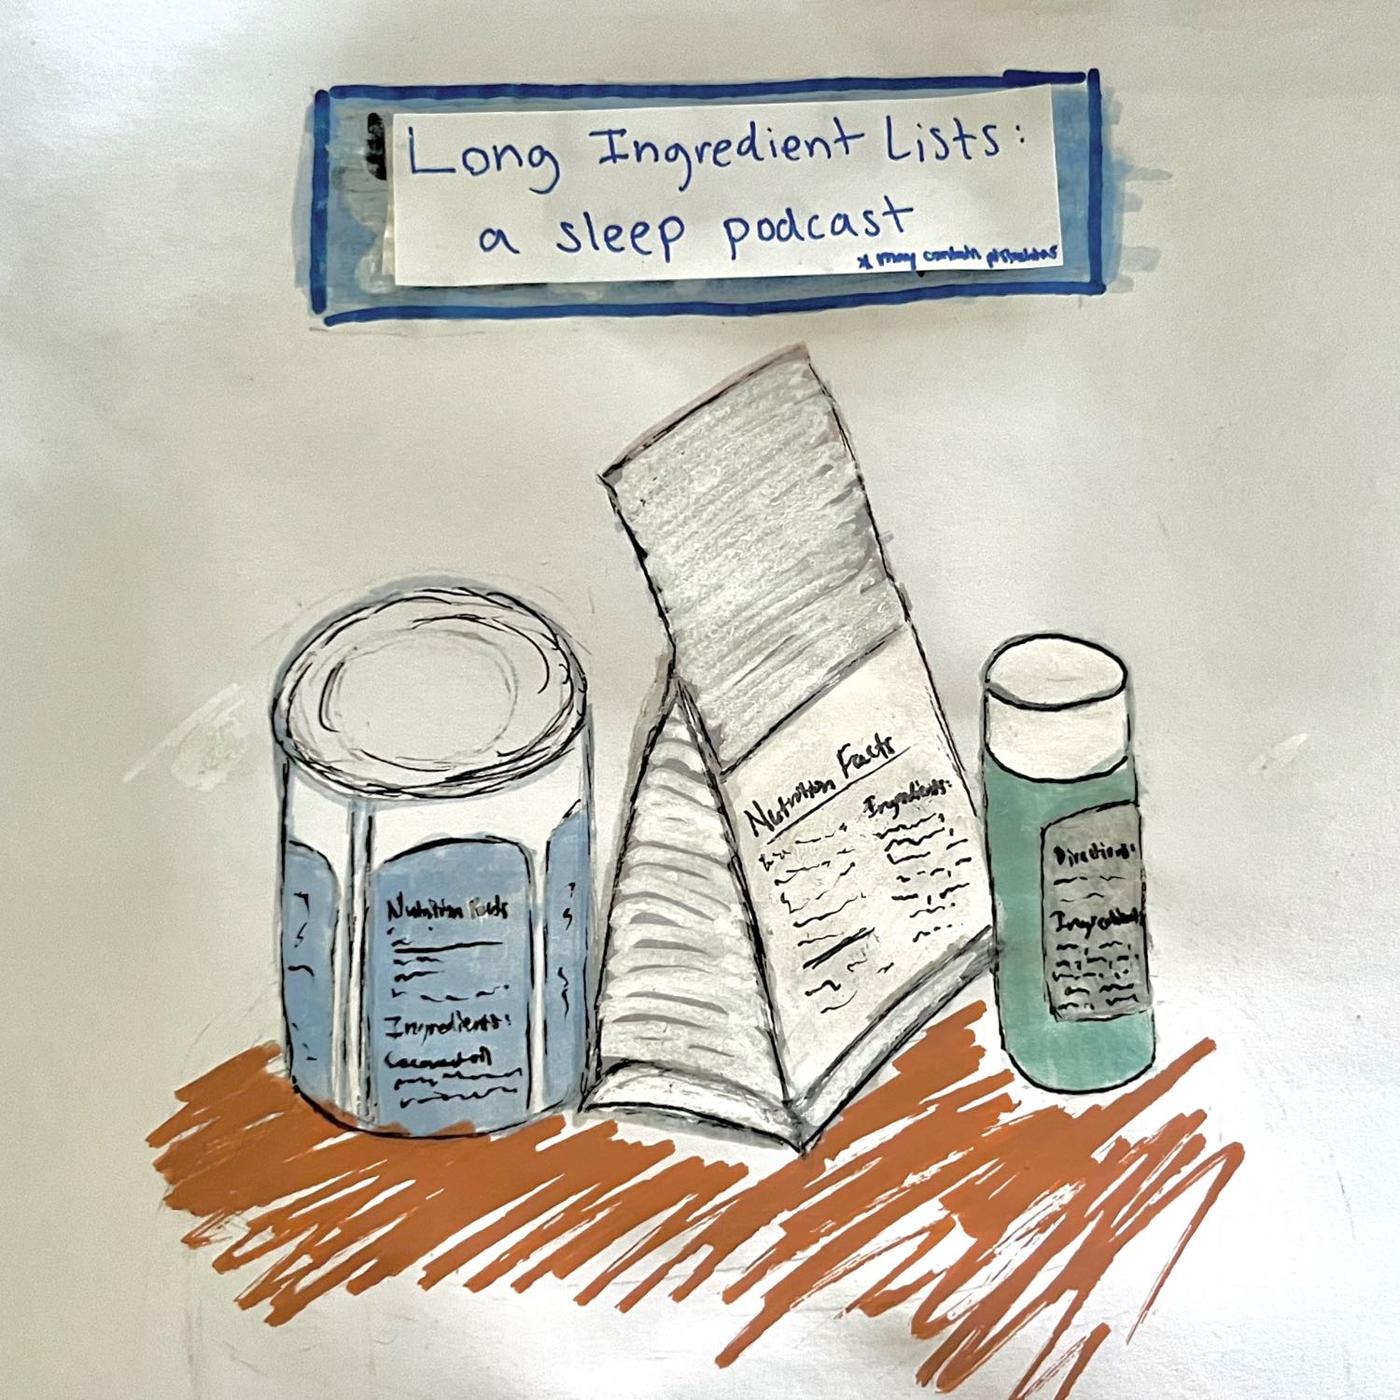 Long Ingredient Lists:
a sleep podcast
* may contain pistachios
Nutrition Facts
Ingredients:
Nutrition Facts
Ingredients:
Directions:
Ingredients